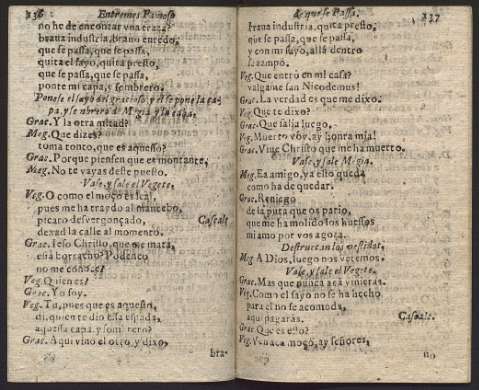 236 Entremes Famoso
no he de encontar vna traza?
braua industria, brauo enredo,
que se passa, que se passa,
quita el sayo, quita presto,
que se passa, que se passa,
ponte mi capa, y sombrero.
Ponese el sayo del gracioso, y el se pone la ca-
pa, y sombrero de Megia y la capa.
Grac. Y la otra mitad?
Meg. Que dizes?
toma tonto, que es aquesso?
Grac. Porque piensen que es montante,
Meg. No te vayas deste puesto.
Vase, y sale el Vegete.
Veg. O como el moço es tal,
pues me ha traydo al mancebo,
picaro desvergonçado, Cascale
dexad la calle al momento.
Grac. Iesu Christo, que me mata,
està borracho?
no me conoce?
Veg. Quien es?
Grac. Yo soy.
Veg. Tu, pues que es aquesto,
di, quien te dio essa espada,
aquessa capa, y sombrero?
Grac. Aqui vino el otro, y dixo,
bra-
de que se Passa. 237
braua industria, quita presto,
que se passa, que se passa,
y con mi sayo, allà dentro
se zampò.
Veg. Que entrò en mi casa?
valgame san Nicodemus!
Grac. La verdad es que me dixo.
Veg. Que te dixo?
Grac. Que salia luego.
Veg. Muerto voy, ay honra mia!
Grac. Viue Christo que me ha muerto.
Vase, y sale Megia.
Meg. Ea amigo, ya esto queda
como ha de quedar.
Grac. Reniego
de la puta que os pario,
que me ha molido los huessos
mi amo por vos agora.
Meg. A Dios, luego nos veremos.
Vase, y sale el Vegete.
Grac. Mas que nunca acà vinieras.
Veg. Como el sayo no se ha hecho
para el no se acomoda,
aqui pagaràs. Cascale.
Grac. Que es esto?
Veg. Ven acà moço, ay señores,
no